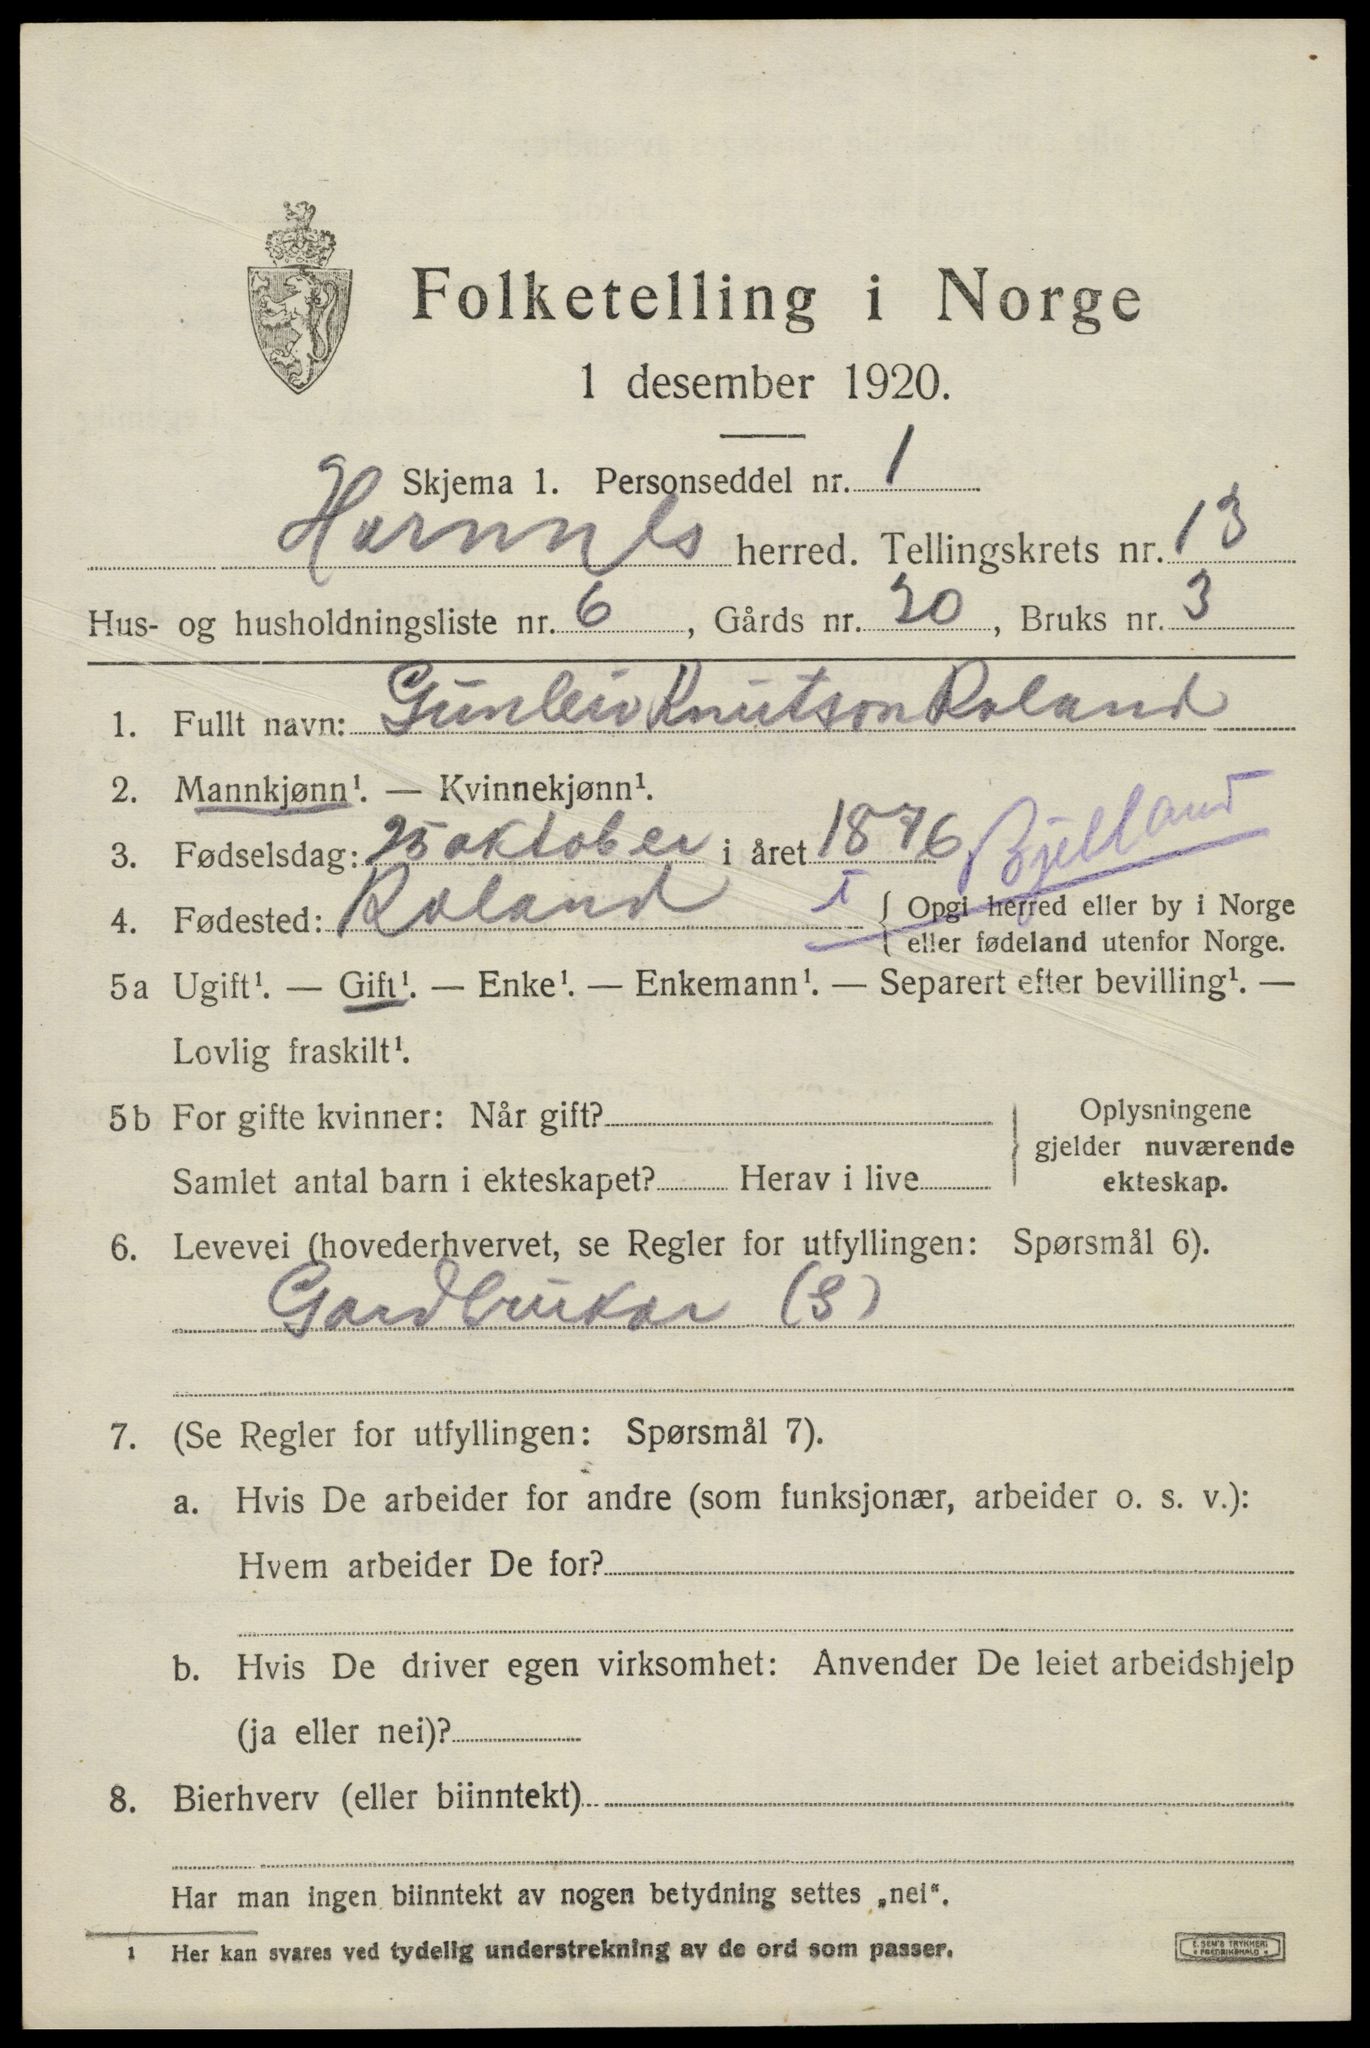 Folketelling i Norge
1 desember 1920.
Skjema 1. Personseddel nr. 1
Hornnes herred. Tellingskrets nr. 13
Hus- og husholdningsliste nr. 6, Gårds nr. 20, Bruks nr. 3
1. Fullt navn: Gunleiv Knutson Roland
2. Mannkjønn¹. — Kvinnekjønn¹.
3. Fødselsdag: 25 oktober i året 1876
4. Fødested: Roland i Bjelland { Opgi herred eller by i Norge
eller fødeland utenfor Norge.
5a Ugift¹. — Gift¹. — Enke¹. — Enkemann¹. — Separert efter bevilling¹. —
Lovlig fraskilt¹.
5b For gifte kvinner: Når gift? } Oplysningene
gjelder nuværende
Samlet antal barn i ekteskapet? Herav i live ekteskap.
6. Levevei (hovederhvervet, se Regler for utfyllingen: Spørsmål 6).
Gardbrukar (S)
7. (Se Regler for utfyllingen: Spørsmål 7).
a. Hvis De arbeider for andre (som funksjonær, arbeider o. s. v.):
Hvem arbeider De for?
b. Hvis De driver egen virksomhet: Anvender De leiet arbeidshjelp
(ja eller nei)?
8. Bierhverv (eller biinntekt)
Har man ingen biinntekt av nogen betydning settes „nei“.
1 Her kan svares ved tydelig understrekning av de ord som passer.
E. SEM'S TRYKKERI
FREDRIKSHALD